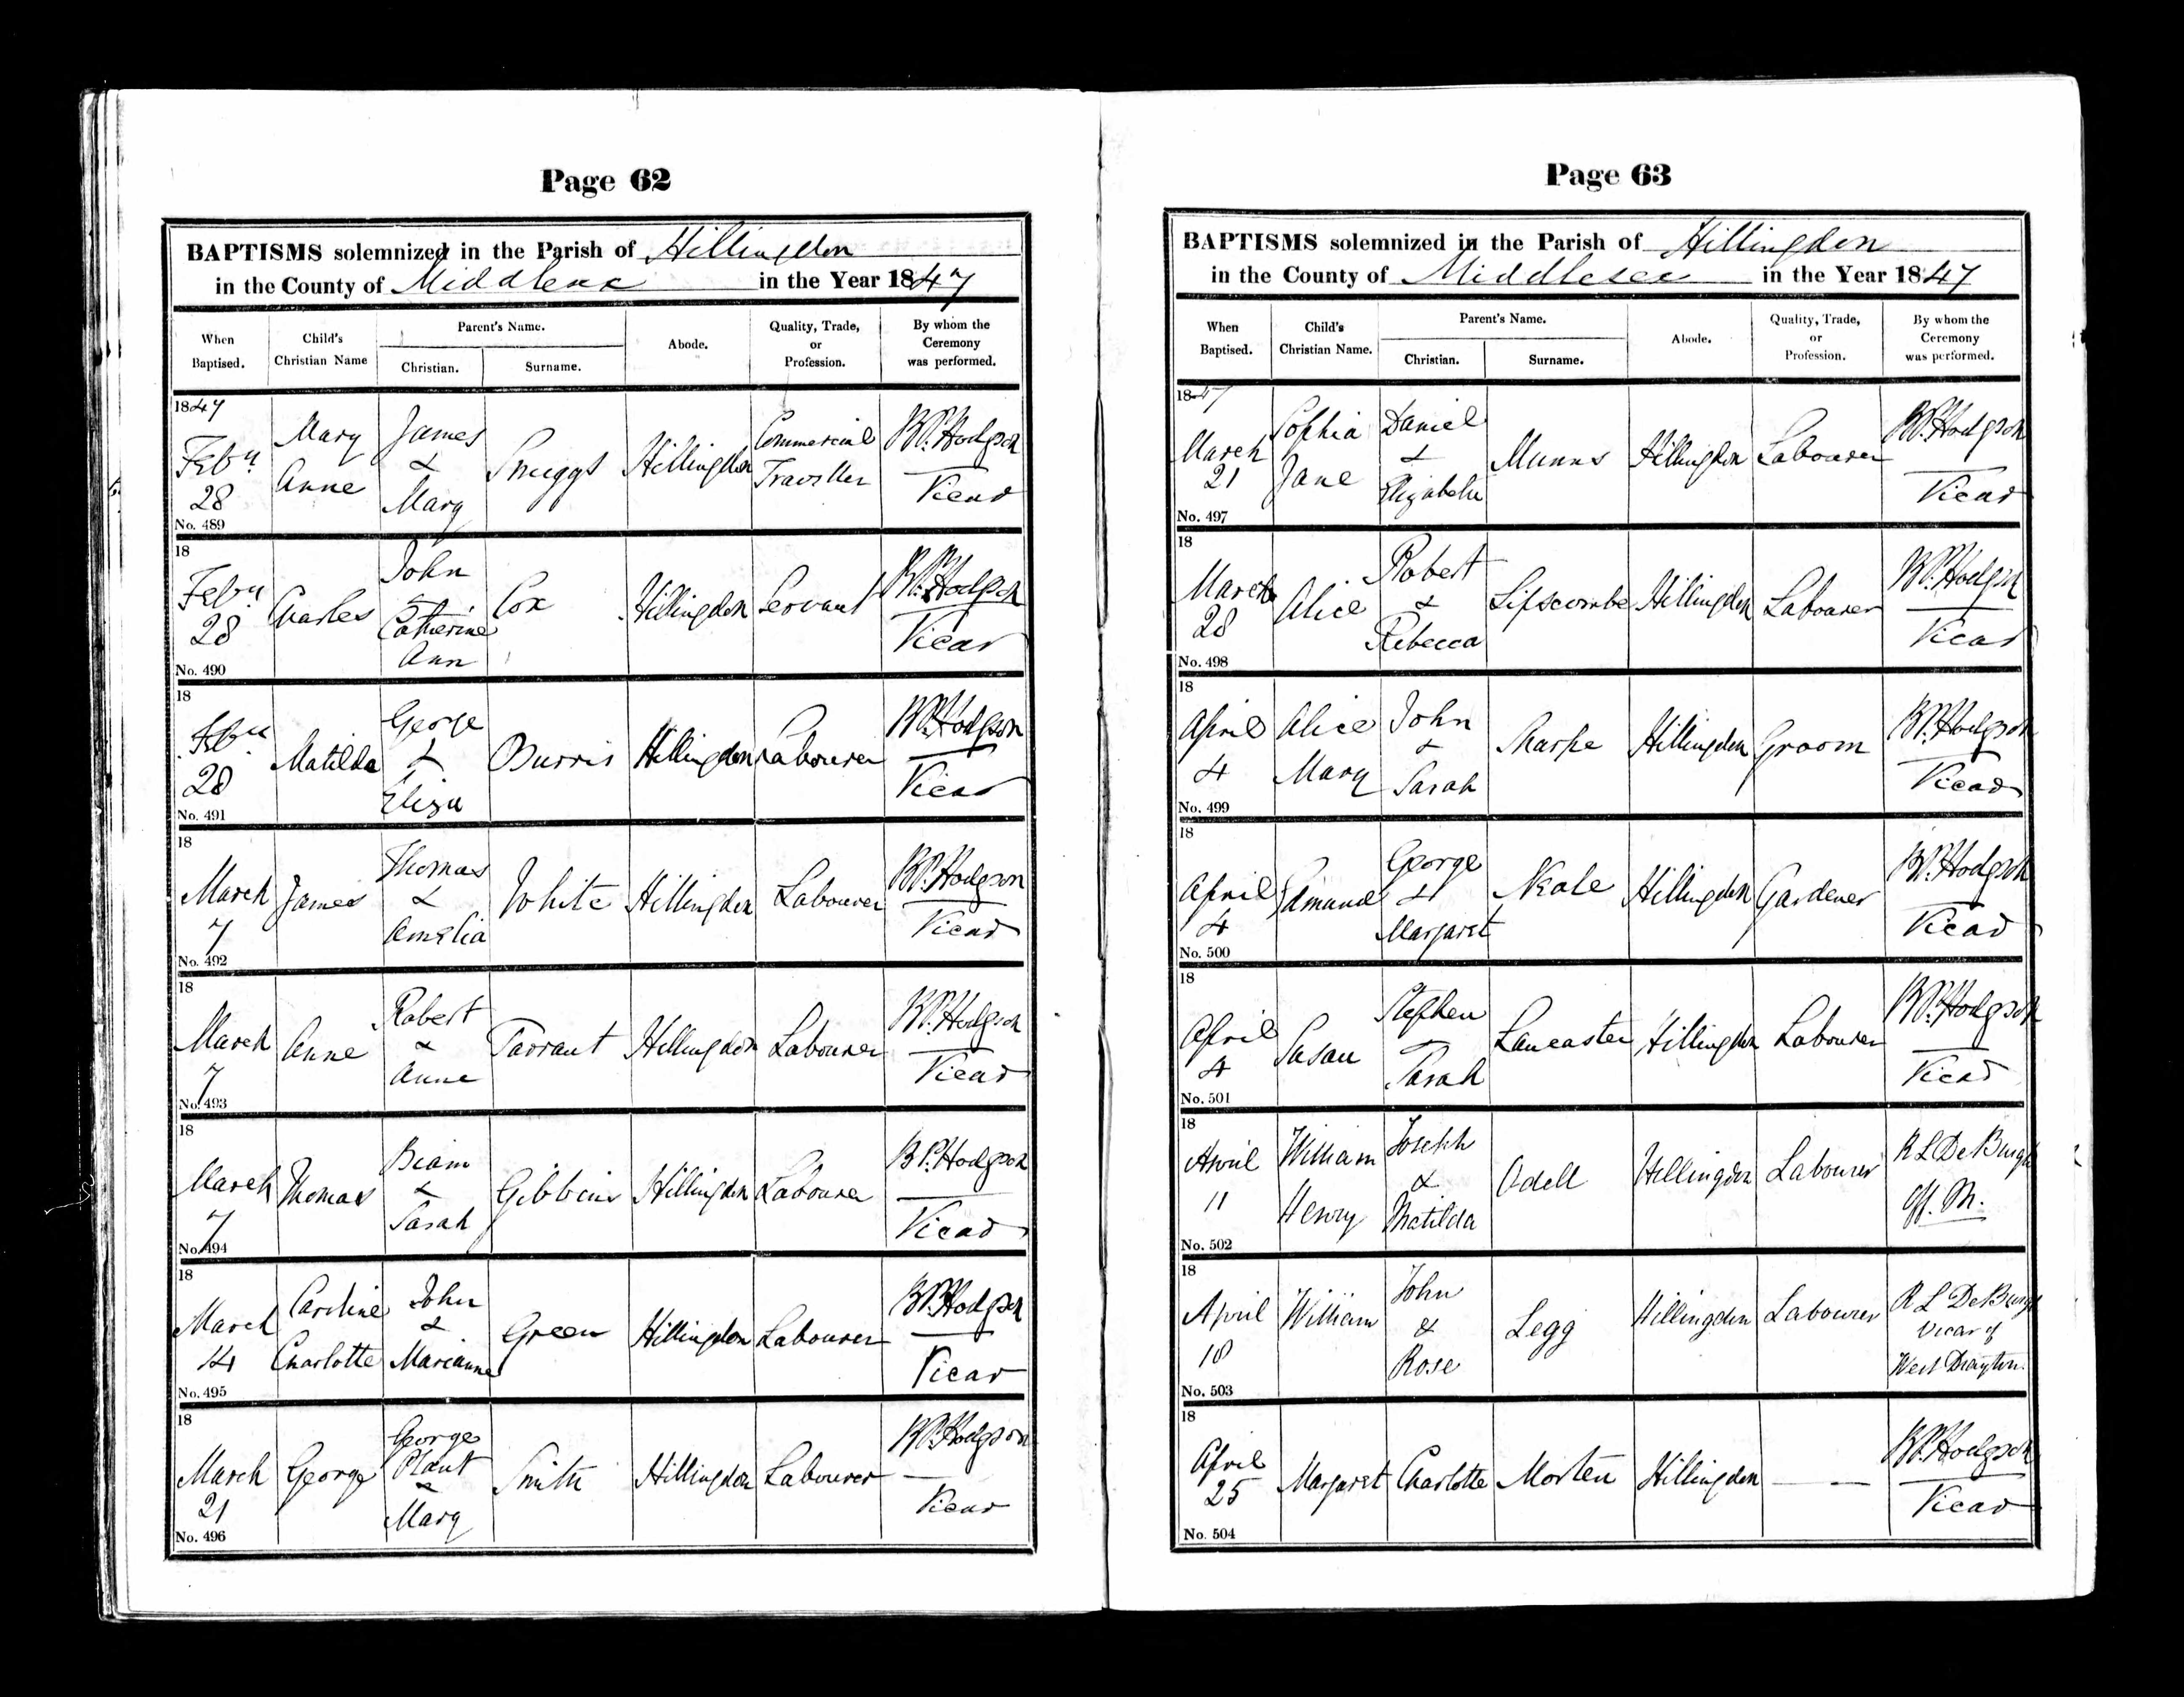 Page 62
BAPTISMS solemnized in the Parish of Hillingdon
in the County of Middlesex in the Year 1847
When Baptised. Child's Christian Name Parent's Name. Christian. Surname. Abode. Quality, Trade, or Profession. By whom the Ceremony was performed.
1847 Feby 28 No. 489 Mary Anne James & Mary Snuggs Hillingdon Commercial Traveller Hodgson Vicar
18 Feby 28 No. 490 Charles John & Catherine Ann Cox Hillingdon Servant Hodgson Vicar
18 Feby 28 No. 491 Matilda George & Eliza Burris Hillingdon Labourer Hodgson Vicar
18 March 7 No. 492 James Thomas & Amelia White Hillingdon Labourer Hodgson Vicar
18 March 7 No. 493 Anne Robert & Anne Tarrant Hillingdon Labourer Hodgson Vicar
18 March 7 No. 494 Thomas & Sarah Gibbins Hillingdon Labourer Hodgson Vicar
18 March 14 No. 495 Caroline Charlotte John & Marianne Green Hillingdon Labourer Hodgson Vicar
18 March 21 No. 496 George George Plant & Mary Smith Hillingdon Labourer Hodgson Vicar
Page 63
BAPTISMS solemnized in the Parish of Hillingdon
in the County of Middlesex in the Year 1847
When Baptised. Child's Christian Name. Parent's Name. Christian. Surname. Abode. Quality, Trade, or Profession. By whom the Ceremony was performed.
1847 March 21 No. 497 Sophia Jane Daniel & Elizabeth Munns Hillingdon Labourer Hodgson Vicar
18 March 28 No. 498 Alice Robert & Rebecca Lipscombe Hillingdon Labourer Hodgson Vicar
18 April 4 No. 499 Alice Mary John & Sarah Sharpe Hillingdon Groom Hodgson Vicar
18 April 4 No. 500 Edmund George & Margaret Neale Hillingdon Gardener Hodgson Vicar
18 April 4 No. 501 Susan Stephen & Sarah Lancaster Hillingdon Labourer Hodgson Vicar
18 April 11 No. 502 William Henry Joseph & Matilda Odell Hillingdon Labourer R L De Burgh Off. M.
18 April 18 No. 503 William John & Rose Legg Hillingdon Labourer R L De Burgh Vicar of West Drayton.
18 April 25 No. 504 Margaret Charlotte Morten Hillingdon — — Hodgson Vicar